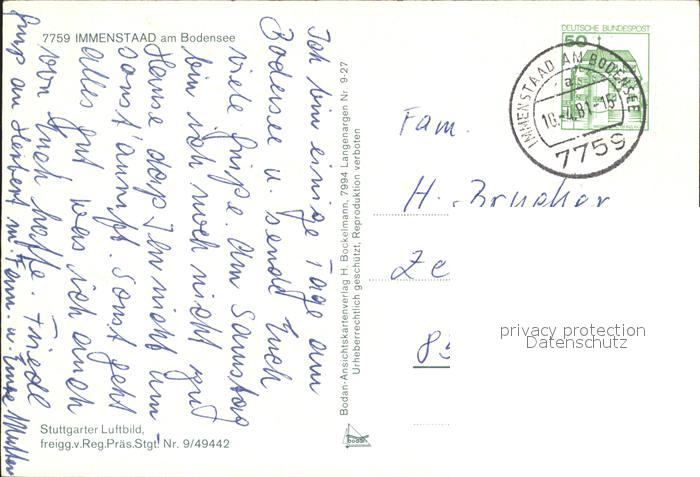 7759 IMMENSTAAD am Bodensee
Ich bin einige Tage am
Bodensee u. sende Euch
viele Grüße. Am Samstag
bin ich noch nicht gut
Hause daß Ihr nicht um-
sonst anruft. Sonst geht
alles gut was ich auch
von Euch hoffe. Friedl
Grüß an Herbert m. Fam. u. Eure Mutter
Stuttgarter Luftbild,
freigg.v.Reg.Präs.Stgt. Nr. 9/49442
Bodan-Ansichtskartenverlag H. Bockelmann, 7994 Langenargen Nr. 9-27
Urheberrechtlich geschützt, Reproduktion verboten
bodan
DEUTSCHE BUNDESPOST
50
IMMENSTAAD AM BODENSEE
a
10.-4.81-18
7759
Fam.
H. Bruckar
Ze
85
privacy protection
Datenschutz